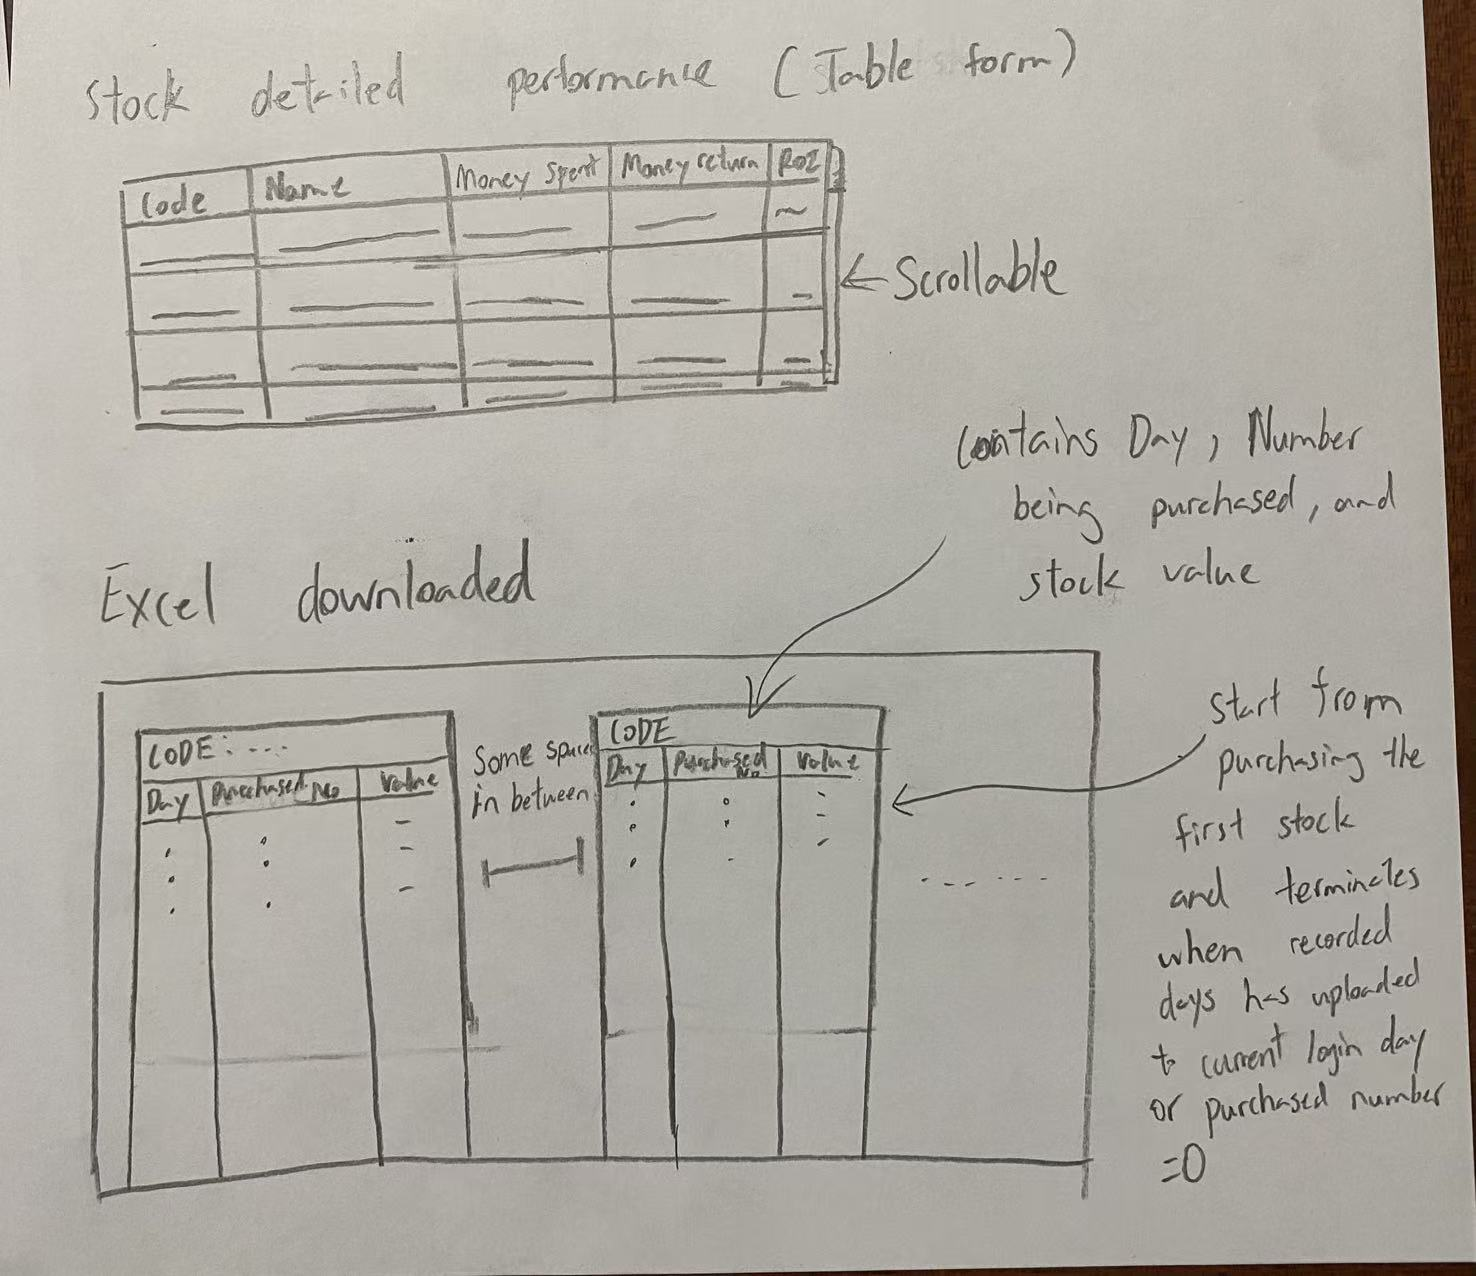 Stock detailed performance (Table form)
Code Name Money spent Money return ROI
← Scrollable
Contains Day, Number
being purchased, and
stock value
Excel downloaded
CODE: ....
Day Purchased No Value
Some space
in between
CODE
Day Purchased No Value
start from
purchasing the
first stock
and terminates
when recorded
days has uploaded
to current login day
or purchased number
=0